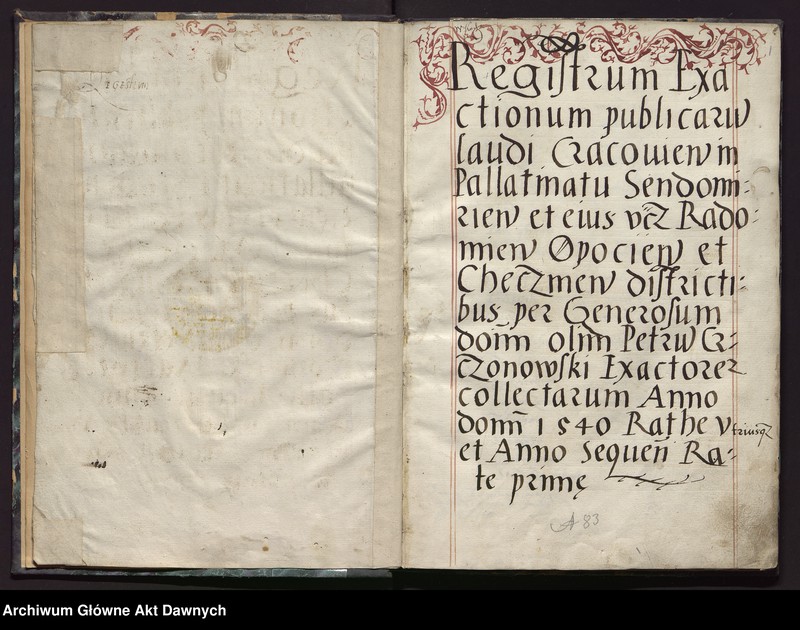 Registrum Exa
ctionum publicarum
laudi Cracovien in
Pallatinatu Sendomi:
rien et eius vcz Rado:
mien Opocien et
Checzinen districti:
bus per Generosum
doim olim Petrum Cr:
czonowski Exactorer
collectarum Anno
domi 1540 Rathe Vtriusqz
et Anno Sequen Ra:
te prime
A 83
Archiwum Główne Akt Dawnych